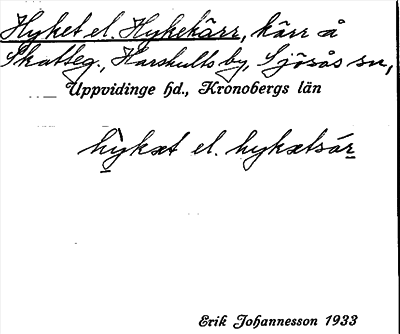 Hyket el. Hykekärr, kärr å
Skatteg., Harskults by, Sjösås sn,
Uppvidinge hd., Kronobergs län
hykæt el. hykætsär
Erik Johannesson 1933